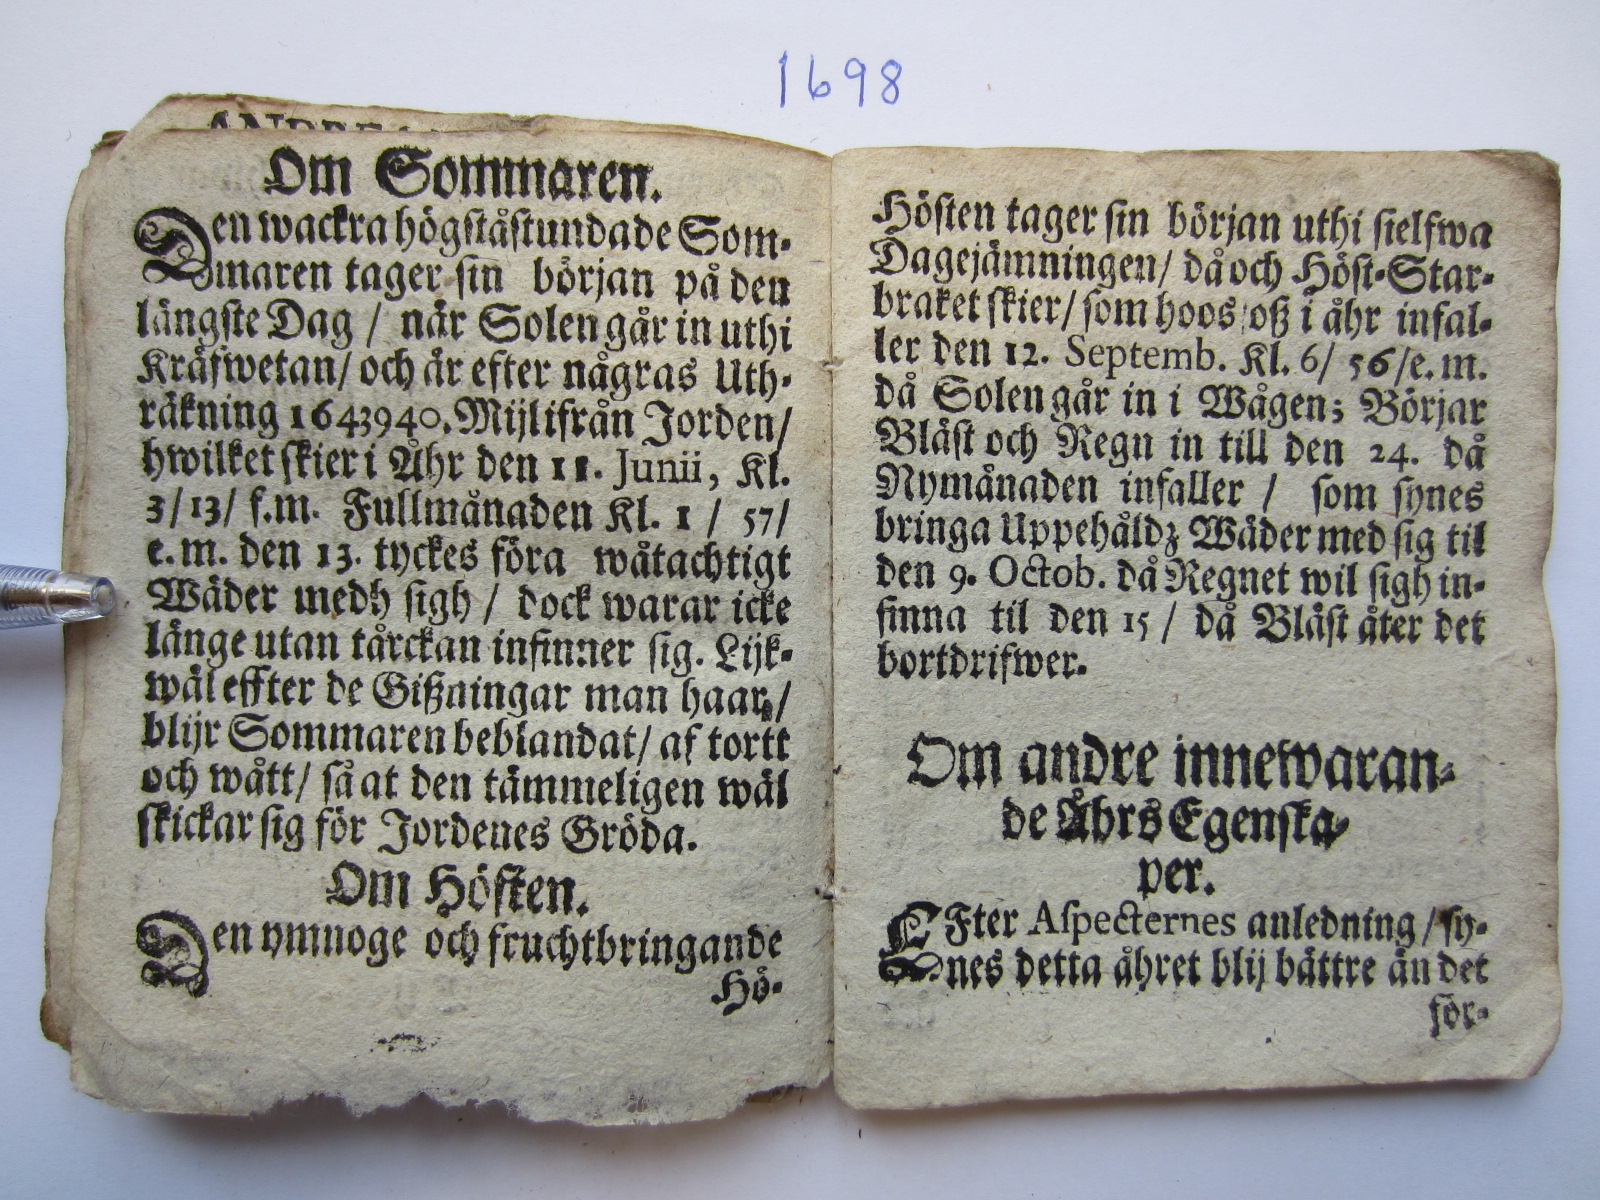 1698
Om Sommaren.
Den wackra högståstundade Som-
maren tager sin början på den
längste Dag / när Solen går in uthi
Kräfwetan/ och är efter någras Uth-
räkning 1643940. Mijl ifrån Jorden/
hwilket skier i Åhr den 11. Junii, Kl.
3/13/ f.m. Fullmånaden Kl. 1 / 57/
e.m. den 13. tyckes föra wåtachtigt
Wäder medh sigh / dock warar icke
länge utan tårckan infinner sig. Lijk-
wäl effter de Gißningar man haar/
blijr Sommaren beblandat/ af tortt
och wått/ så at den tämmeligen wäl
skickar sig för Jordenes Gröda.
Om Hösten.
Den ymnoge och fruchtbringande
Hö-
Hösten tager sin början uthi sielfwa
Dagejämningen/ då och Höst-Star-
braket skier/ som hoos oß i åhr infal-
ler den 12. Septemb. Kl. 6/ 56/e.m.
då Solen går in i Wågen; Börjar
Bläst och Regn in till den 24. då
Nymånaden infaller / som synes
bringa Uppehåldz Wäder med sig til
den 9. Octob. då Regnet wil sigh in-
finna til den 15 / då Bläst åter det
bortdrifwer.
Om andre innewaran-
de Åhrs Egenska-
per.
EFter Aspecternes anledning / sy-
nes detta åhret blij bättre än det
för-